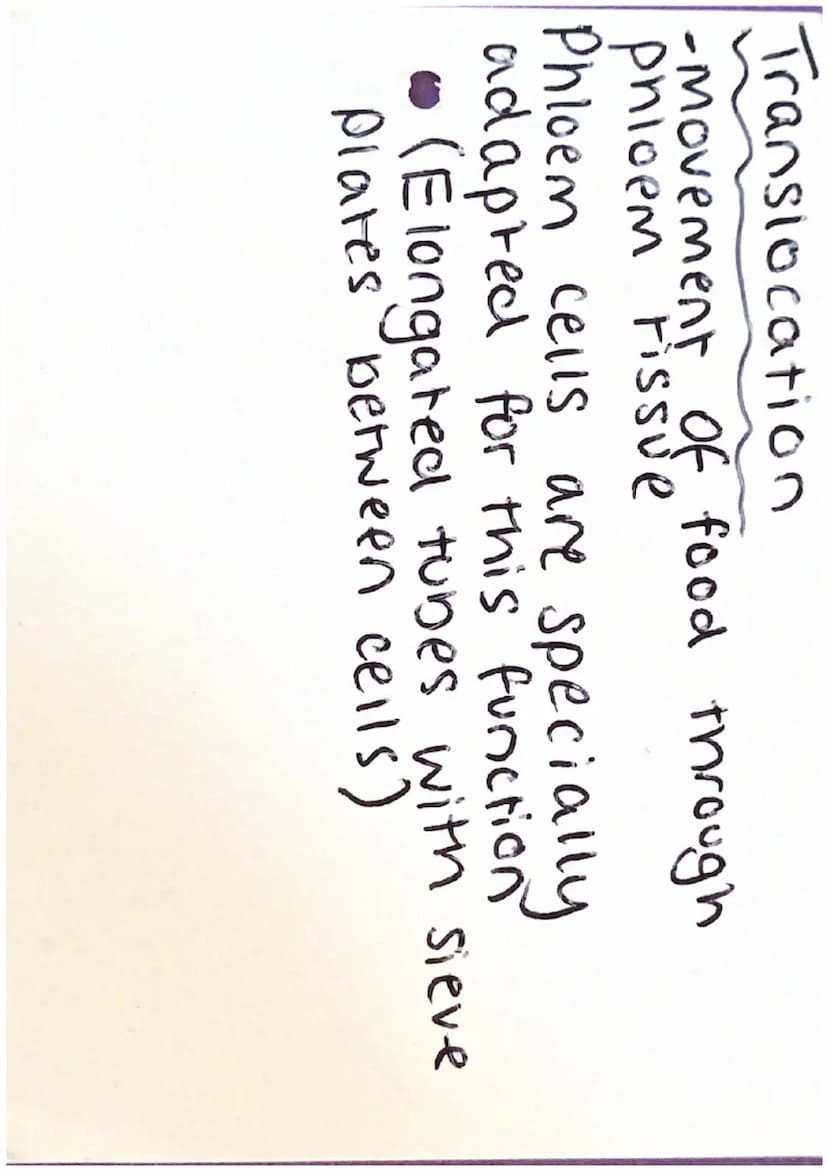 Translocation
-movement of food through
phloem tissue
Phloem cells are specially
adapted for this function
• (Elongated tubes with sieve
plates between cells)